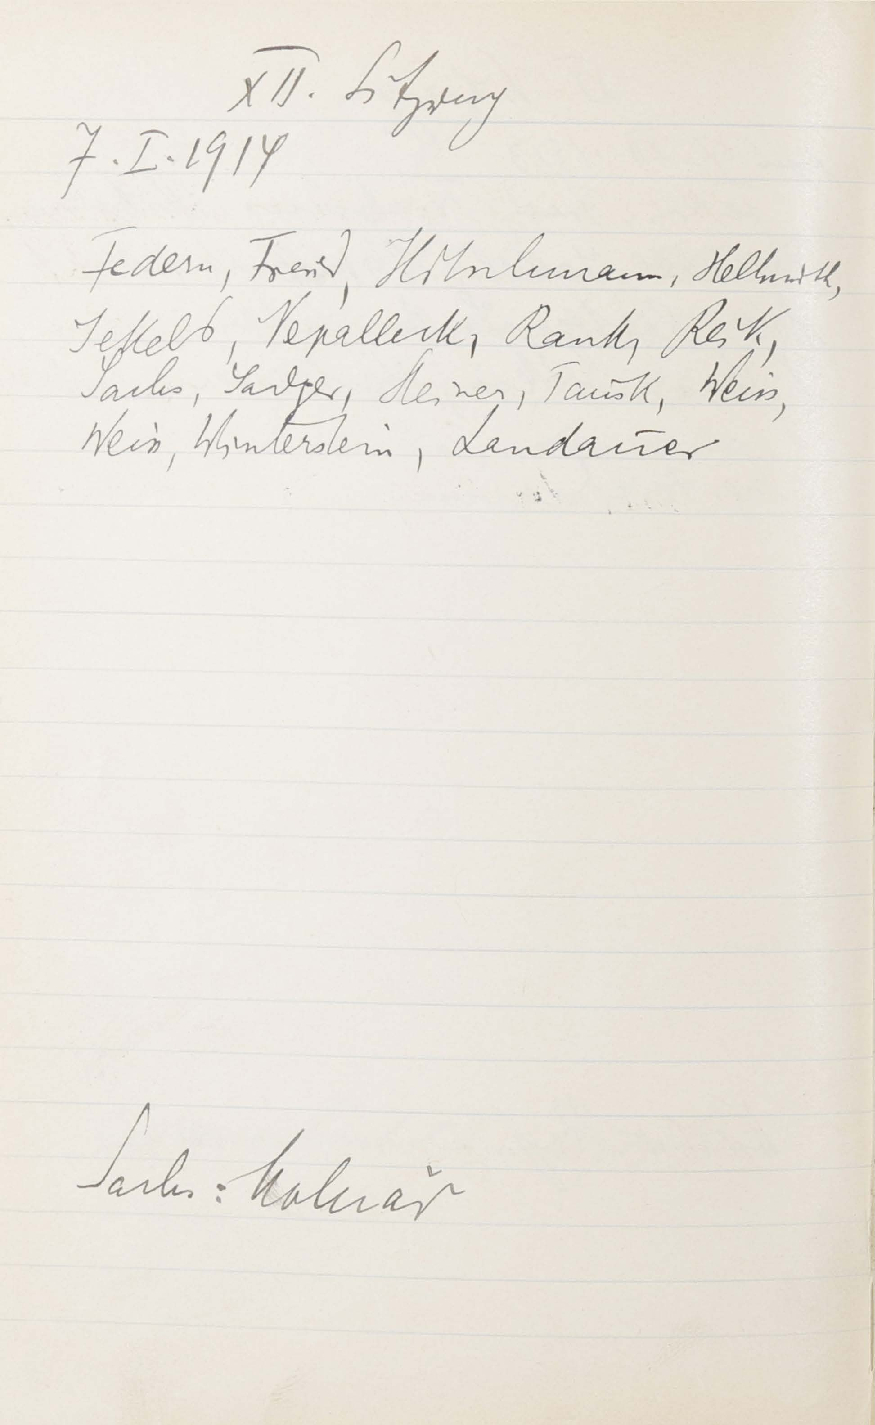 XII. Sitzung
7. I. 1914
Federn, Freud, Hitschmann, Hellmuth,
Jekels, Nepalleck, Rank, Reik,
Sachs, Sadger, Steiner, Tausk, Weiss,
Weiss, Winterstein, Landauer
Sachs: Molnár